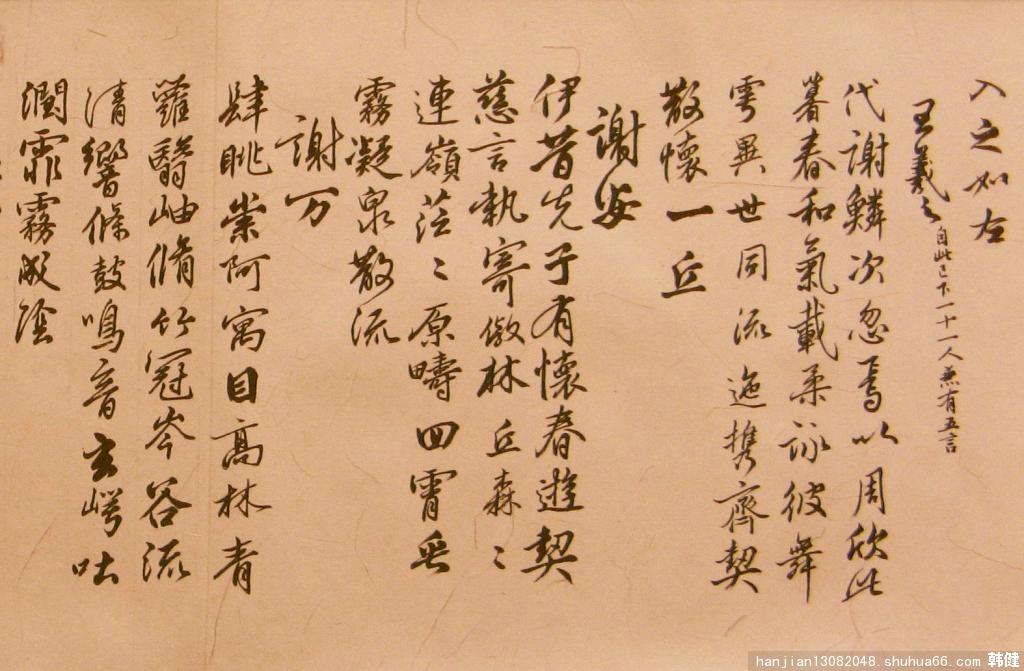 入之如左
王羲之自此已下一十一人兼有五言
代謝鱗次忽焉以周欣此
暮春和氣載柔詠彼舞
雩異世同流迤携齊契
散懷一丘
謝安
伊昔先子有懷春遊契
慈言執寄傲林丘森〻
連嶺茫〻原疇四霄垂
霧凝泉散流
謝万
肆眺崇阿寓目高林青
蘿翳岫脩竹冠岑谷流
清響條鼓鳴音玄崿吐
潤霏霧成陰
hanjian13082048 shuhua66.com 韩健